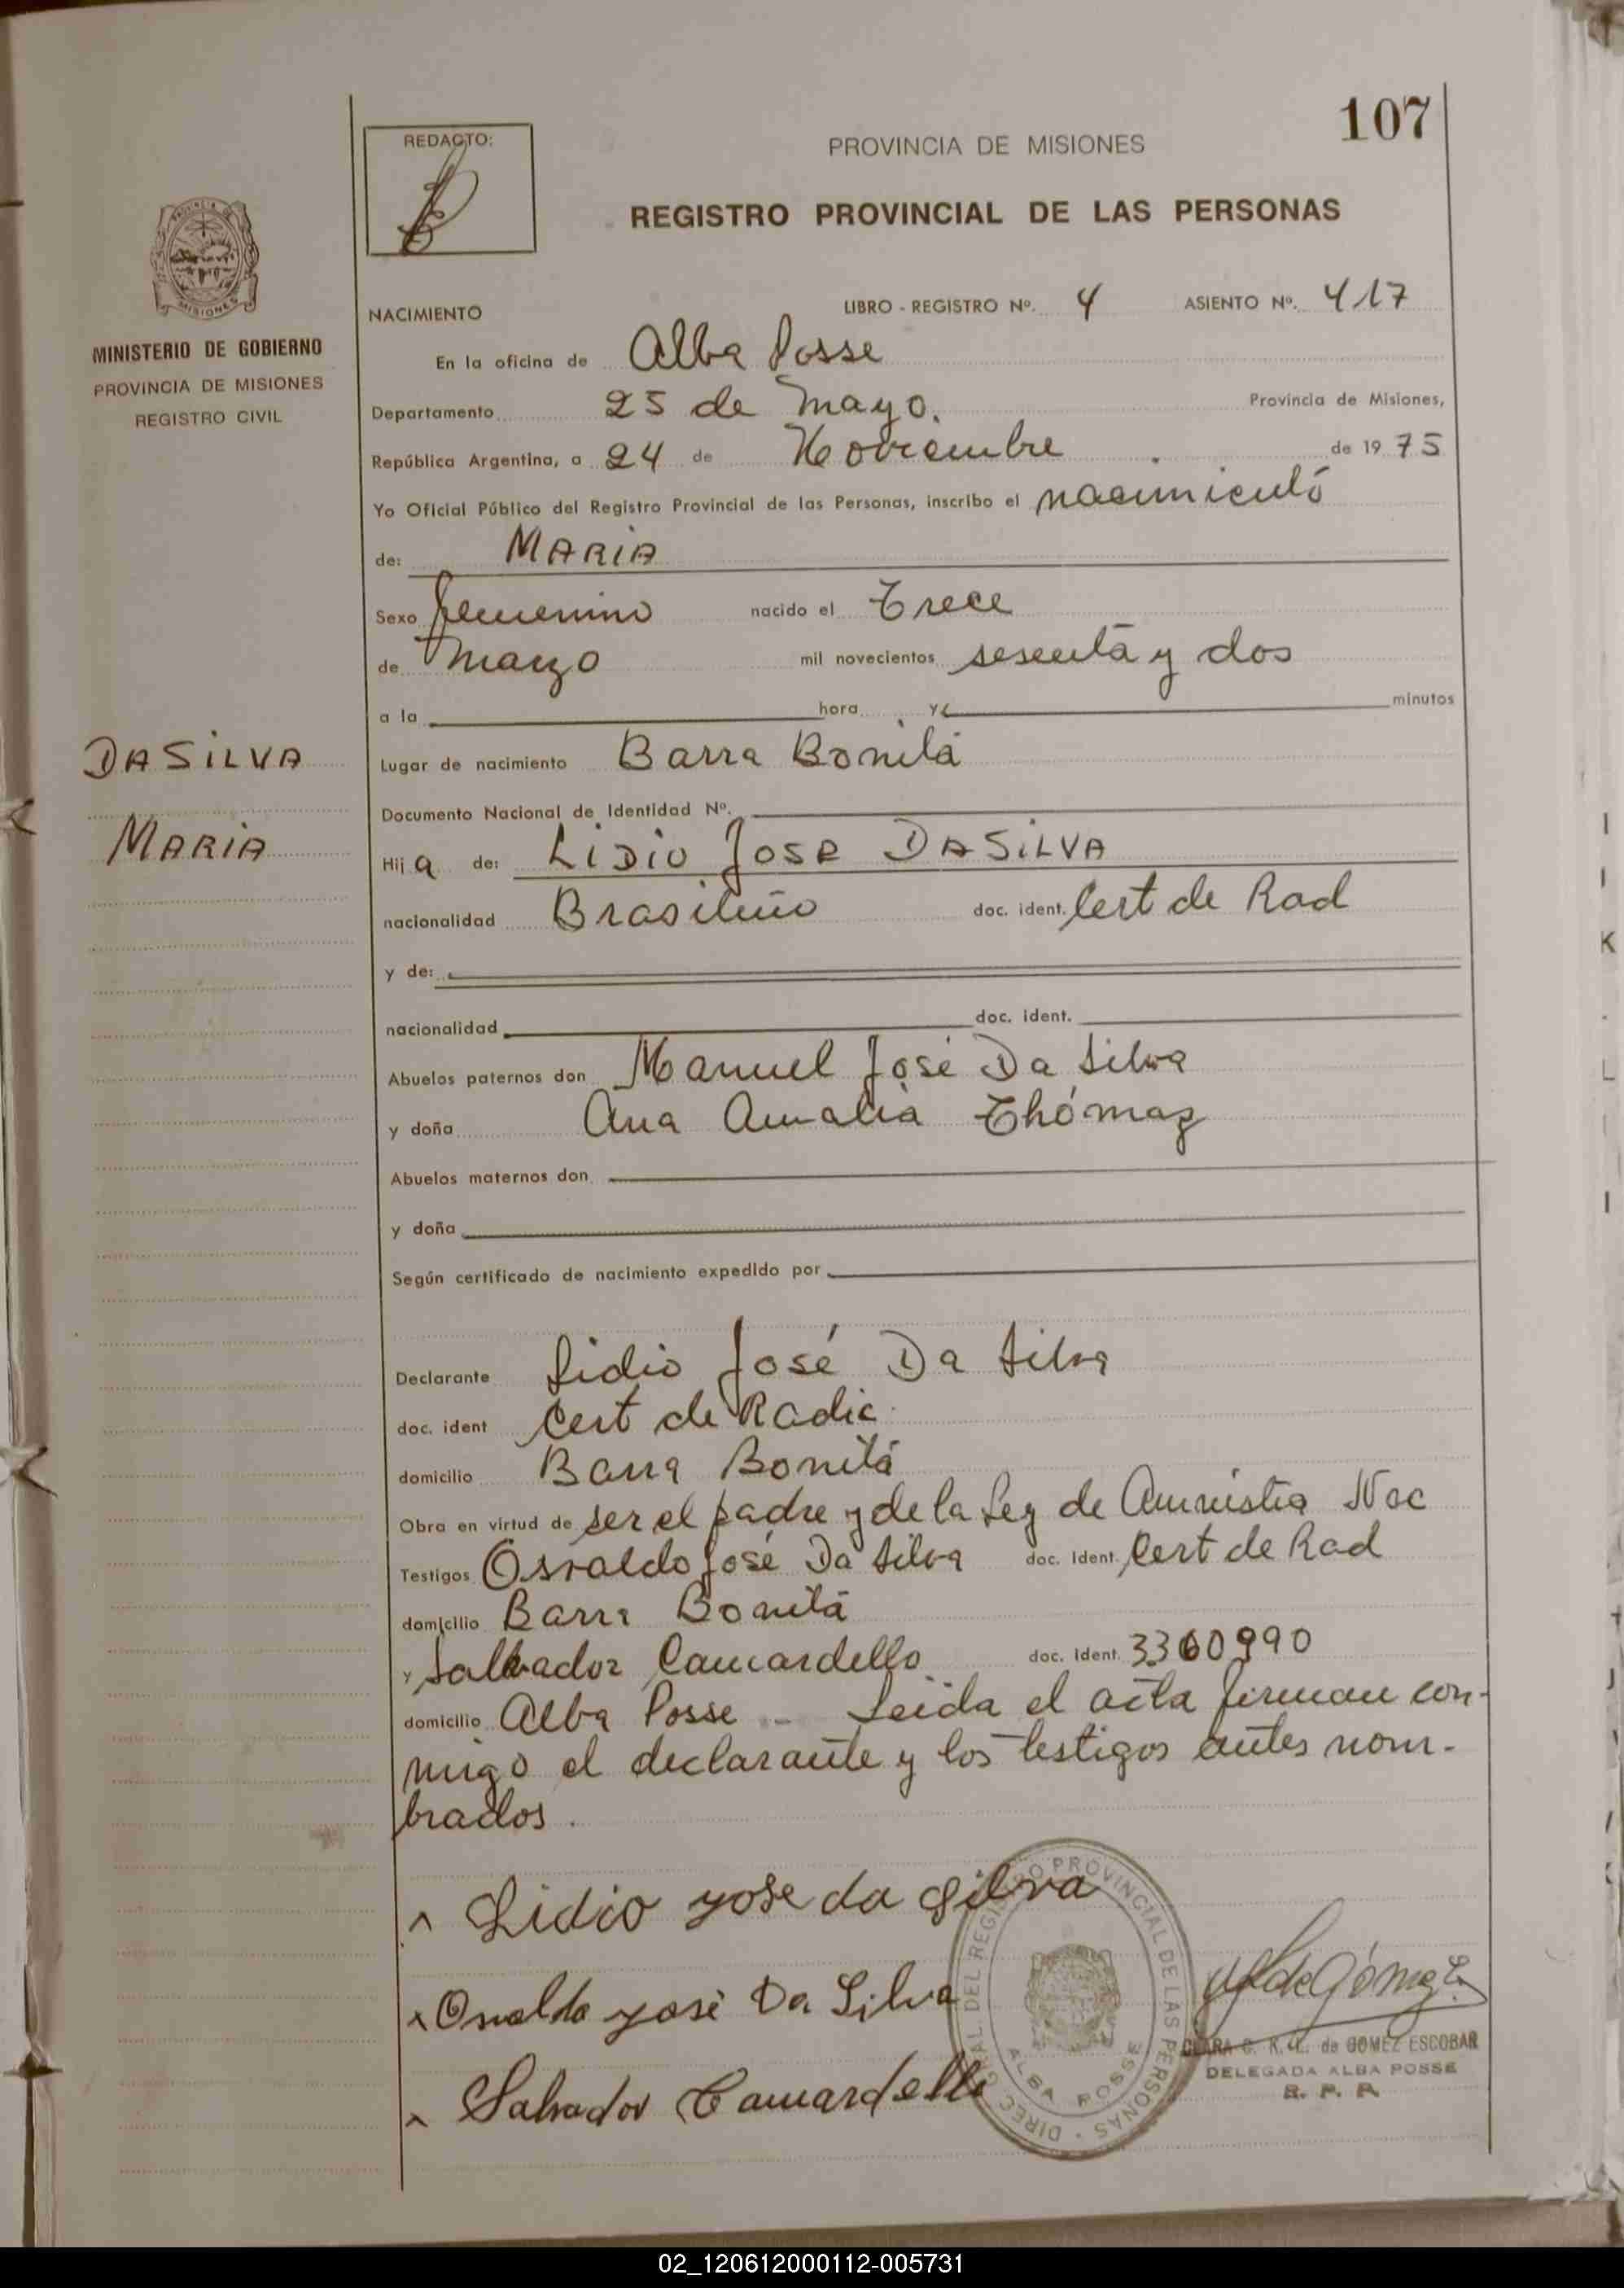 107
REDACTO:
PROVINCIA DE MISIONES
REGISTRO PROVINCIAL DE LAS PERSONAS
MINISTERIO DE GOBIERNO
PROVINCIA DE MISIONES
REGISTRO CIVIL
NACIMIENTO LIBRO - REGISTRO Nº. 4 ASIENTO Nº. 417
En la oficina de Alba Posse
Departamento 25 de Mayo. Provincia de Misiones,
República Argentina, a 24 de Noviembre de 1975
Yo Oficial Público del Registro Provincial de las Personas, inscribo el nacimiento
de: MARIA
Sexo femenino nacido el Trece
de Marzo mil novecientos sesenta y dos
a la hora y minutos
DA SILVA
MARIA
Lugar de nacimiento Barra Bonita
Documento Nacional de Identidad Nº.
Hija de: LIDIO JOSE DA SILVA
nacionalidad Brasileño doc. ident. Cert de Rad
y de:
nacionalidad doc. ident.
Abuelos paternos don Manuel José Da Silva
y doña Ana Amalia Thómaz
Abuelos maternos don
y doña
Según certificado de nacimiento expedido por
Declarante Lidio José Da Silva
doc. ident Cert de Radic.
domicilio Barra Bonita
Obra en virtud de ser el padre y de la Ley de Amnistia Nac
Testigos Osvaldo José Da Silva doc. ident. Cert de Rad
domicilio Barra Bonita
y Salvador Camardello doc. ident. 3360990
domicilio Alba Posse - Leida el acta firman con-
migo el declarante y los testigos antes nom-
brados.
Lidio yose da silva
Osvaldo yosé Da Silva
Salvador Camardello
DIREC. GRAL. DEL REGISTRO PROVINCIAL DE LAS PERSONAS
ALBA POSSE
de Gómez
CLARA C. R. de GOMEZ ESCOBAR
DELEGADA ALBA POSSE
R. P. P.
02_120612000112-005731